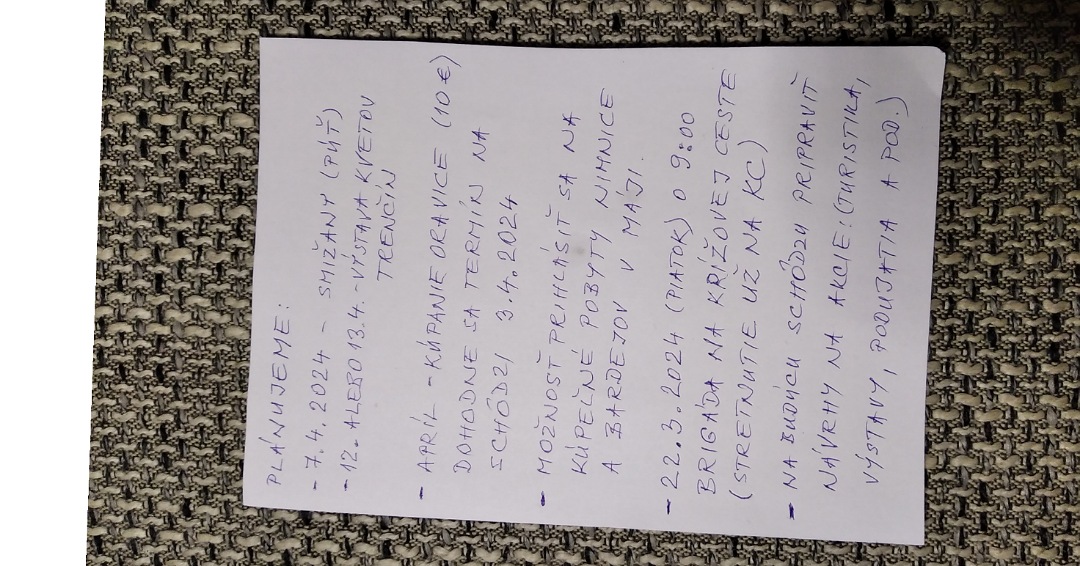 PLÁNUJEME:
- 7.4.2024 - SMIŽANY (PÚŤ)
- 12. ALEBO 13.4. - VÝSTAVA KVETOV
TRENČÍN
- APRÍL - KÚPANIE ORAVICE (10 €)
DOHODNE SA TERMÍN NA
SCHÔDZI 3.4.2024
- MOŽNOSŤ PRHLÁSIŤ SA NA
KÚPEĽNÉ POBYTY NIHNICE
A BARDEJOV V MÁJI.
- 22.3.2024 (PIATOK) O 9:00
BRIGÁDA NA KRÍŽOVEJ CESTE
(STRETNUTIE UŽ NA KC)
- NA BUDÚCU SCHÔDZU PRIPRAVIŤ
NÁVRHY NA AKCIE: (TURISTIKA,
VÝSTAVY, PODUJATIA A POD.)